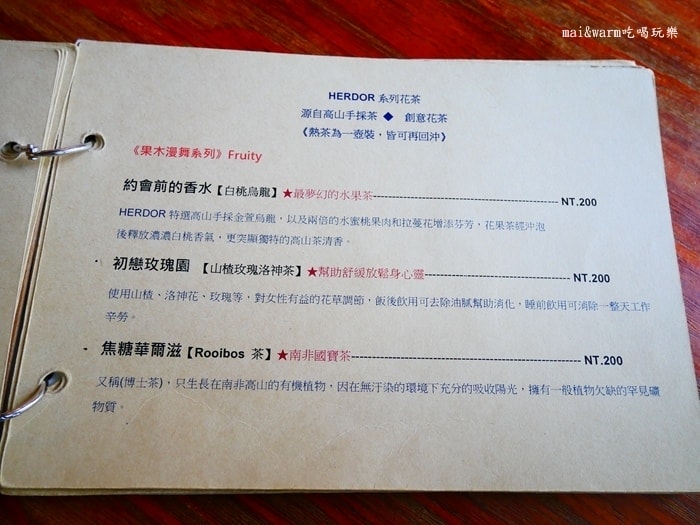 mai&warm吃喝玩樂
HERDOR 系列花茶
源自高山手採茶 ◆ 創意花茶
《熱茶為一壺裝，皆可再回沖》
《果木漫舞系列》Fruity
約會前的香水【白桃烏龍】★最夢幻的水果茶------------------------------------------------ NT.200
HERDOR 特選高山手採金萱烏龍，以及兩倍的水蜜桃果肉和拉蔓花增添芬芳，花果茶經沖泡
後釋放濃濃白桃香氣，更突顯獨特的高山茶清香。
初戀玫瑰園 【山楂玫瑰洛神茶】★幫助舒緩放鬆身心靈------------------------------------- NT.200
使用山楂、洛神花、玫瑰等，對女性有益的花草調節，飯後飲用可去除油膩幫助消化，睡前飲用可消除一整天工作
辛勞。
焦糖華爾滋【Rooibos 茶】★南非國寶茶--------------------------------------------------------- NT.200
又稱(博士茶)，只生長在南非高山的有機植物，因在無汙染的環境下充分的吸收陽光，擁有一般植物欠缺的罕見礦
物質。